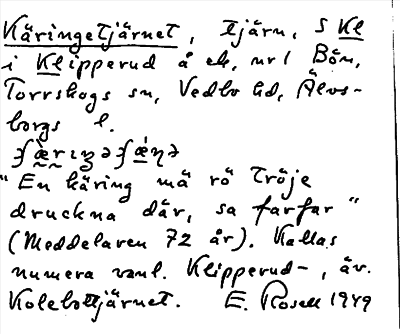 Käringetjärnet, tjärn, S Kl
i Klipperud å ek, nr 1 Bön,
Torrskogs sn, Vedbo hd, Älvs-
borgs l.
"En käring mä rö tröje
druckna där, sa farfar"
(Meddelaren 72 år). Kallas
numera vanl. Klipperud-, äv.
Kolebottjärnet. E. Rosell 1949